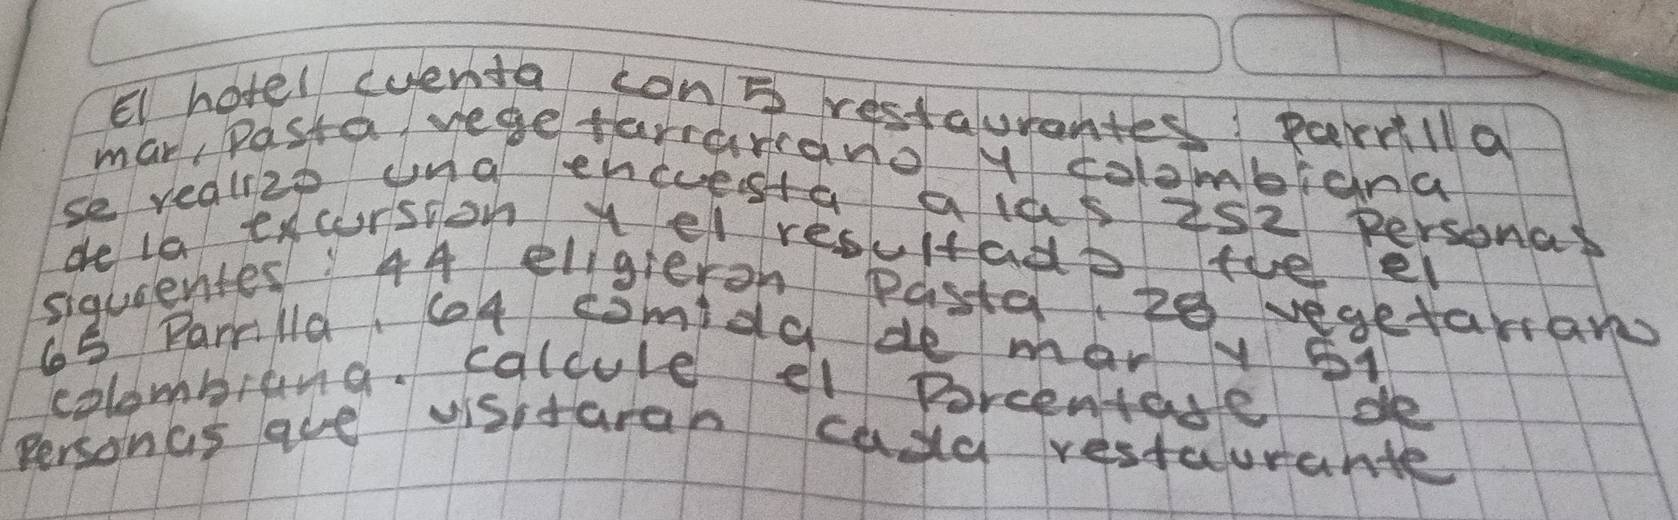 El hotel cuenta con 5 restaurantes: Parrilla
mar, Pasta, vegetarrarrano y colombiana
se realizo una encuesta a las 252 Personas
de la excursion y el resultado fue el
siguientes: 44 eligieron Pasta, 28 vegetarrano
65 Parrilla, 64 comida de mar y 51
colombiana. calcule el Porcentage de
Personas que visitaran cada restaurante